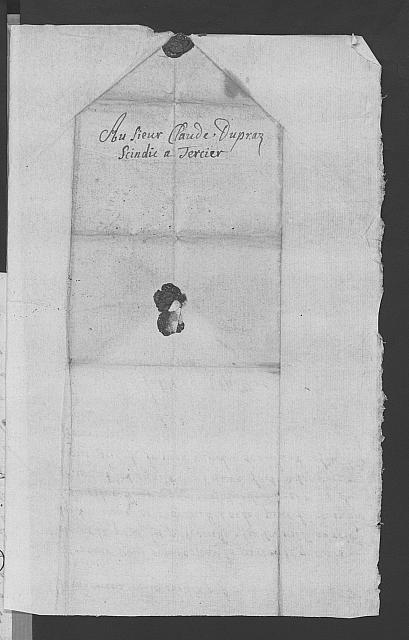 Au sieur Claude Dupraz
scindic a Tercier